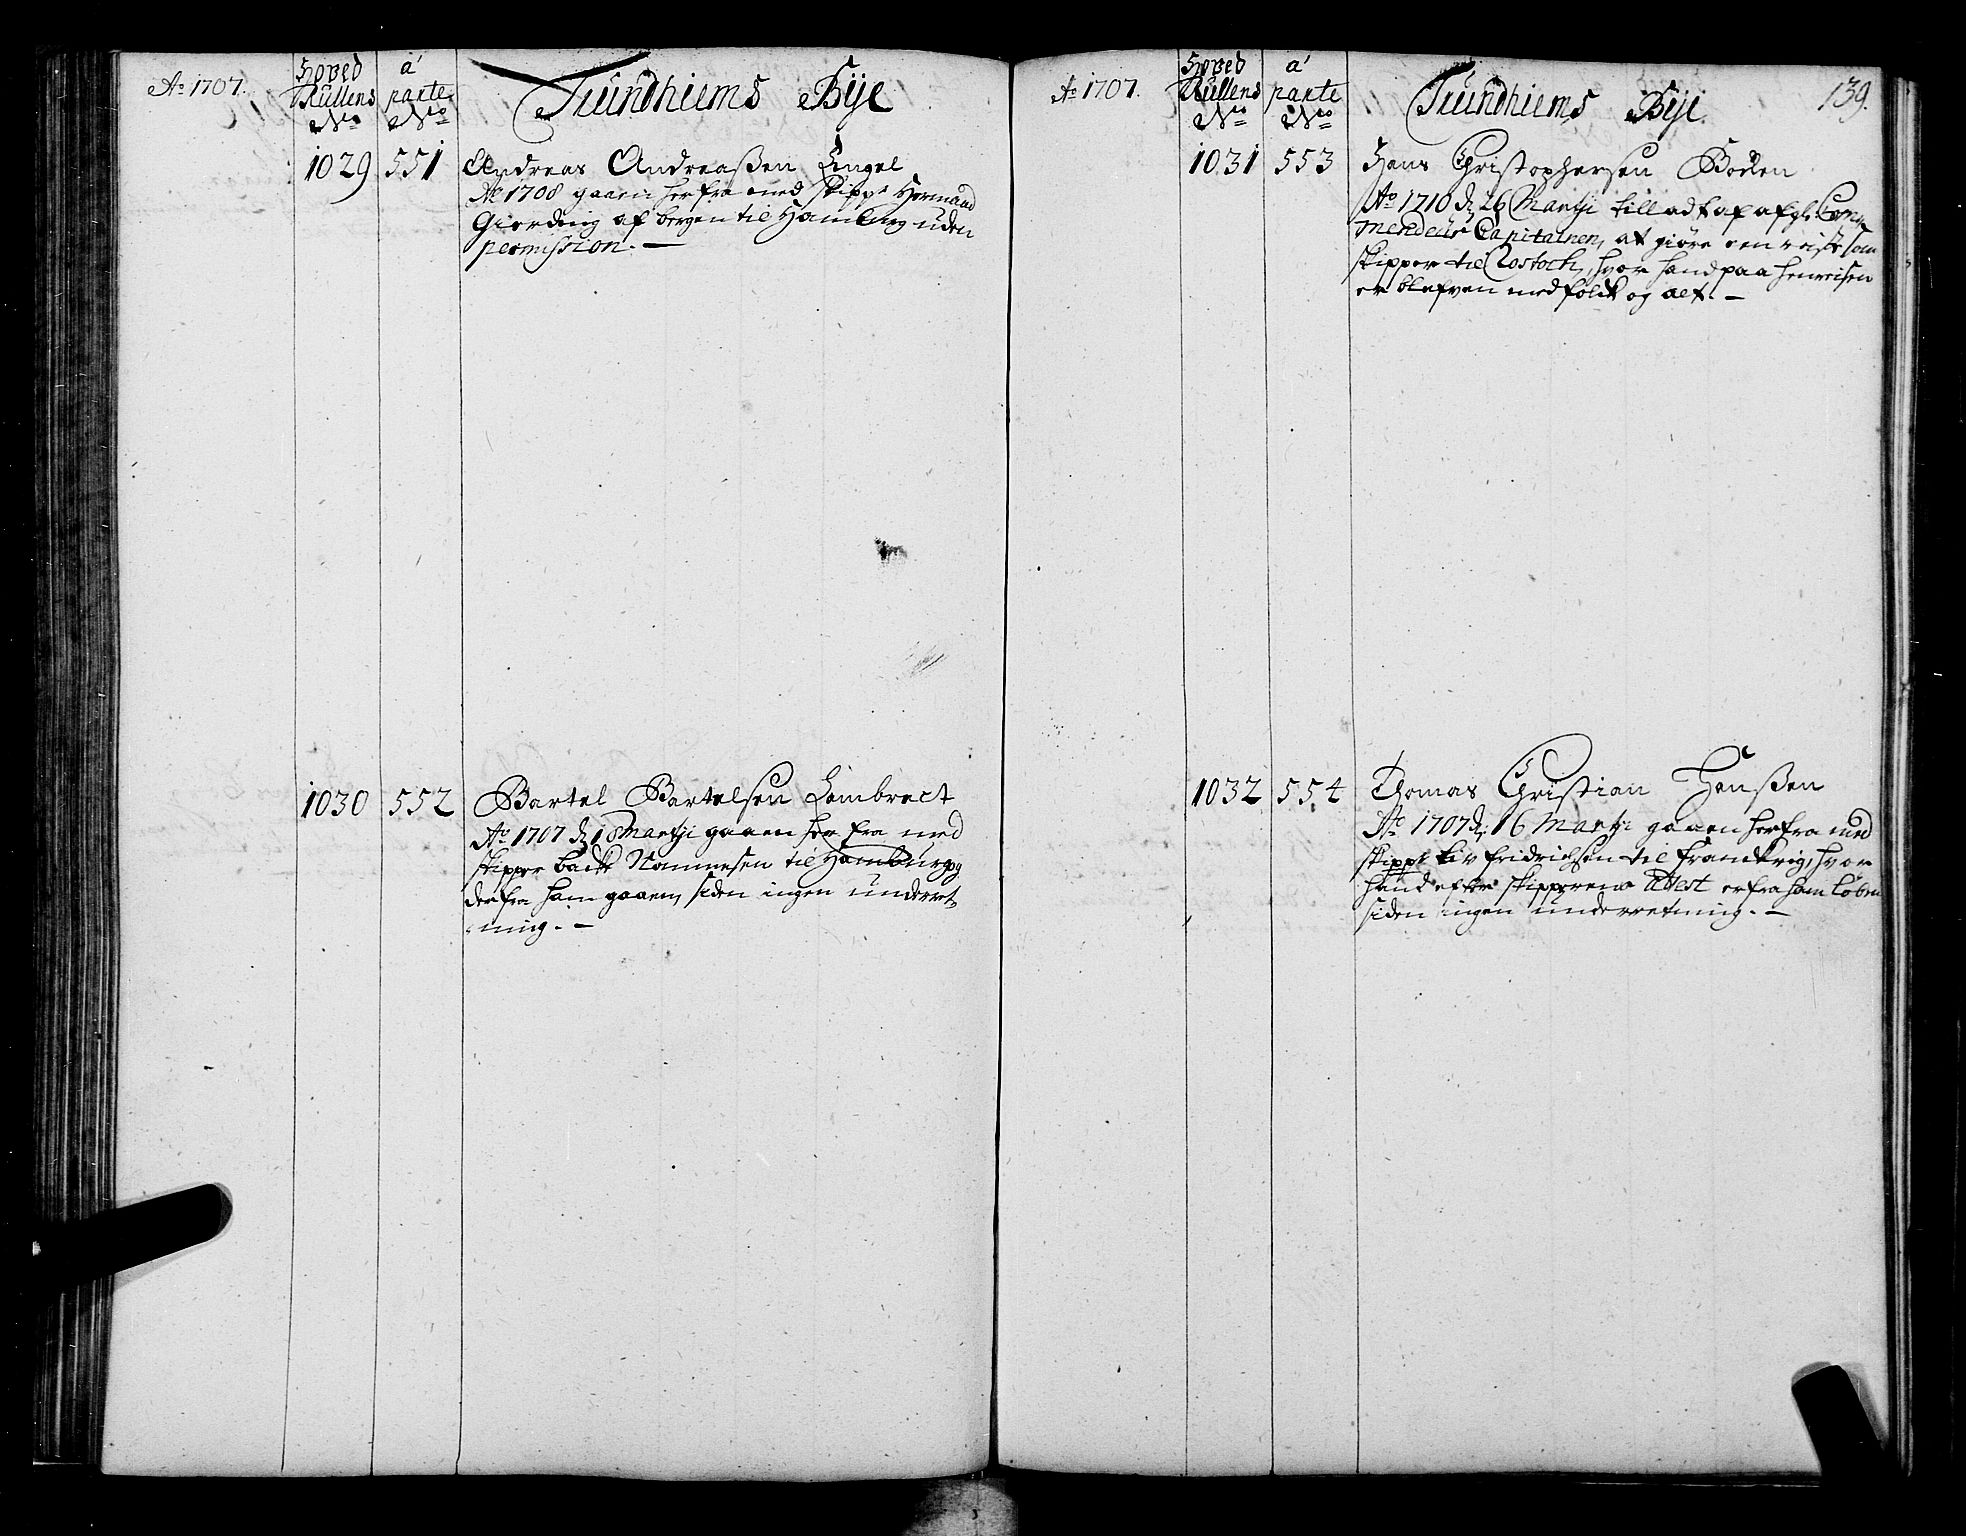 Ao 1707.
Hoved
Rullens
No
a'
parte
No
Trundhiems Bÿe
1029 551 Andreas Andreaßen Engel
Ao 1708 gaaen herfra med skippr Hermand
Giording af bergen til Hamburg uden
permission. —
1030 552 Bartel Bartelsen Lambrect
Ao 1707 d. 18 Martji gaaen her fra med
skipper Nannesen til Hamburg og
derfra ham gaaen, siden ingen underret-
ning. —
Ao 1707.
Hoved
Rullens
No
a'
parte
No
Trundhiems Bÿe
139.
1031 553 Hans Christophersen Boden
Ao 1710 d. 26 Martji tilladt af afgl. Com-
mendeur Capitainen, at giøre een reise som
skipper til Rostoch, hvor hand paa henreisen
er blefven med folck og alt. —
1032 554 Thomas Christian Hanßen
Ao 1707 d. 16 Martji gaaen herfra med
skippr fridrichsen til franckrig, hvor
hand efter skipperens Attest er fra ham løben
siden ingen underretning. —